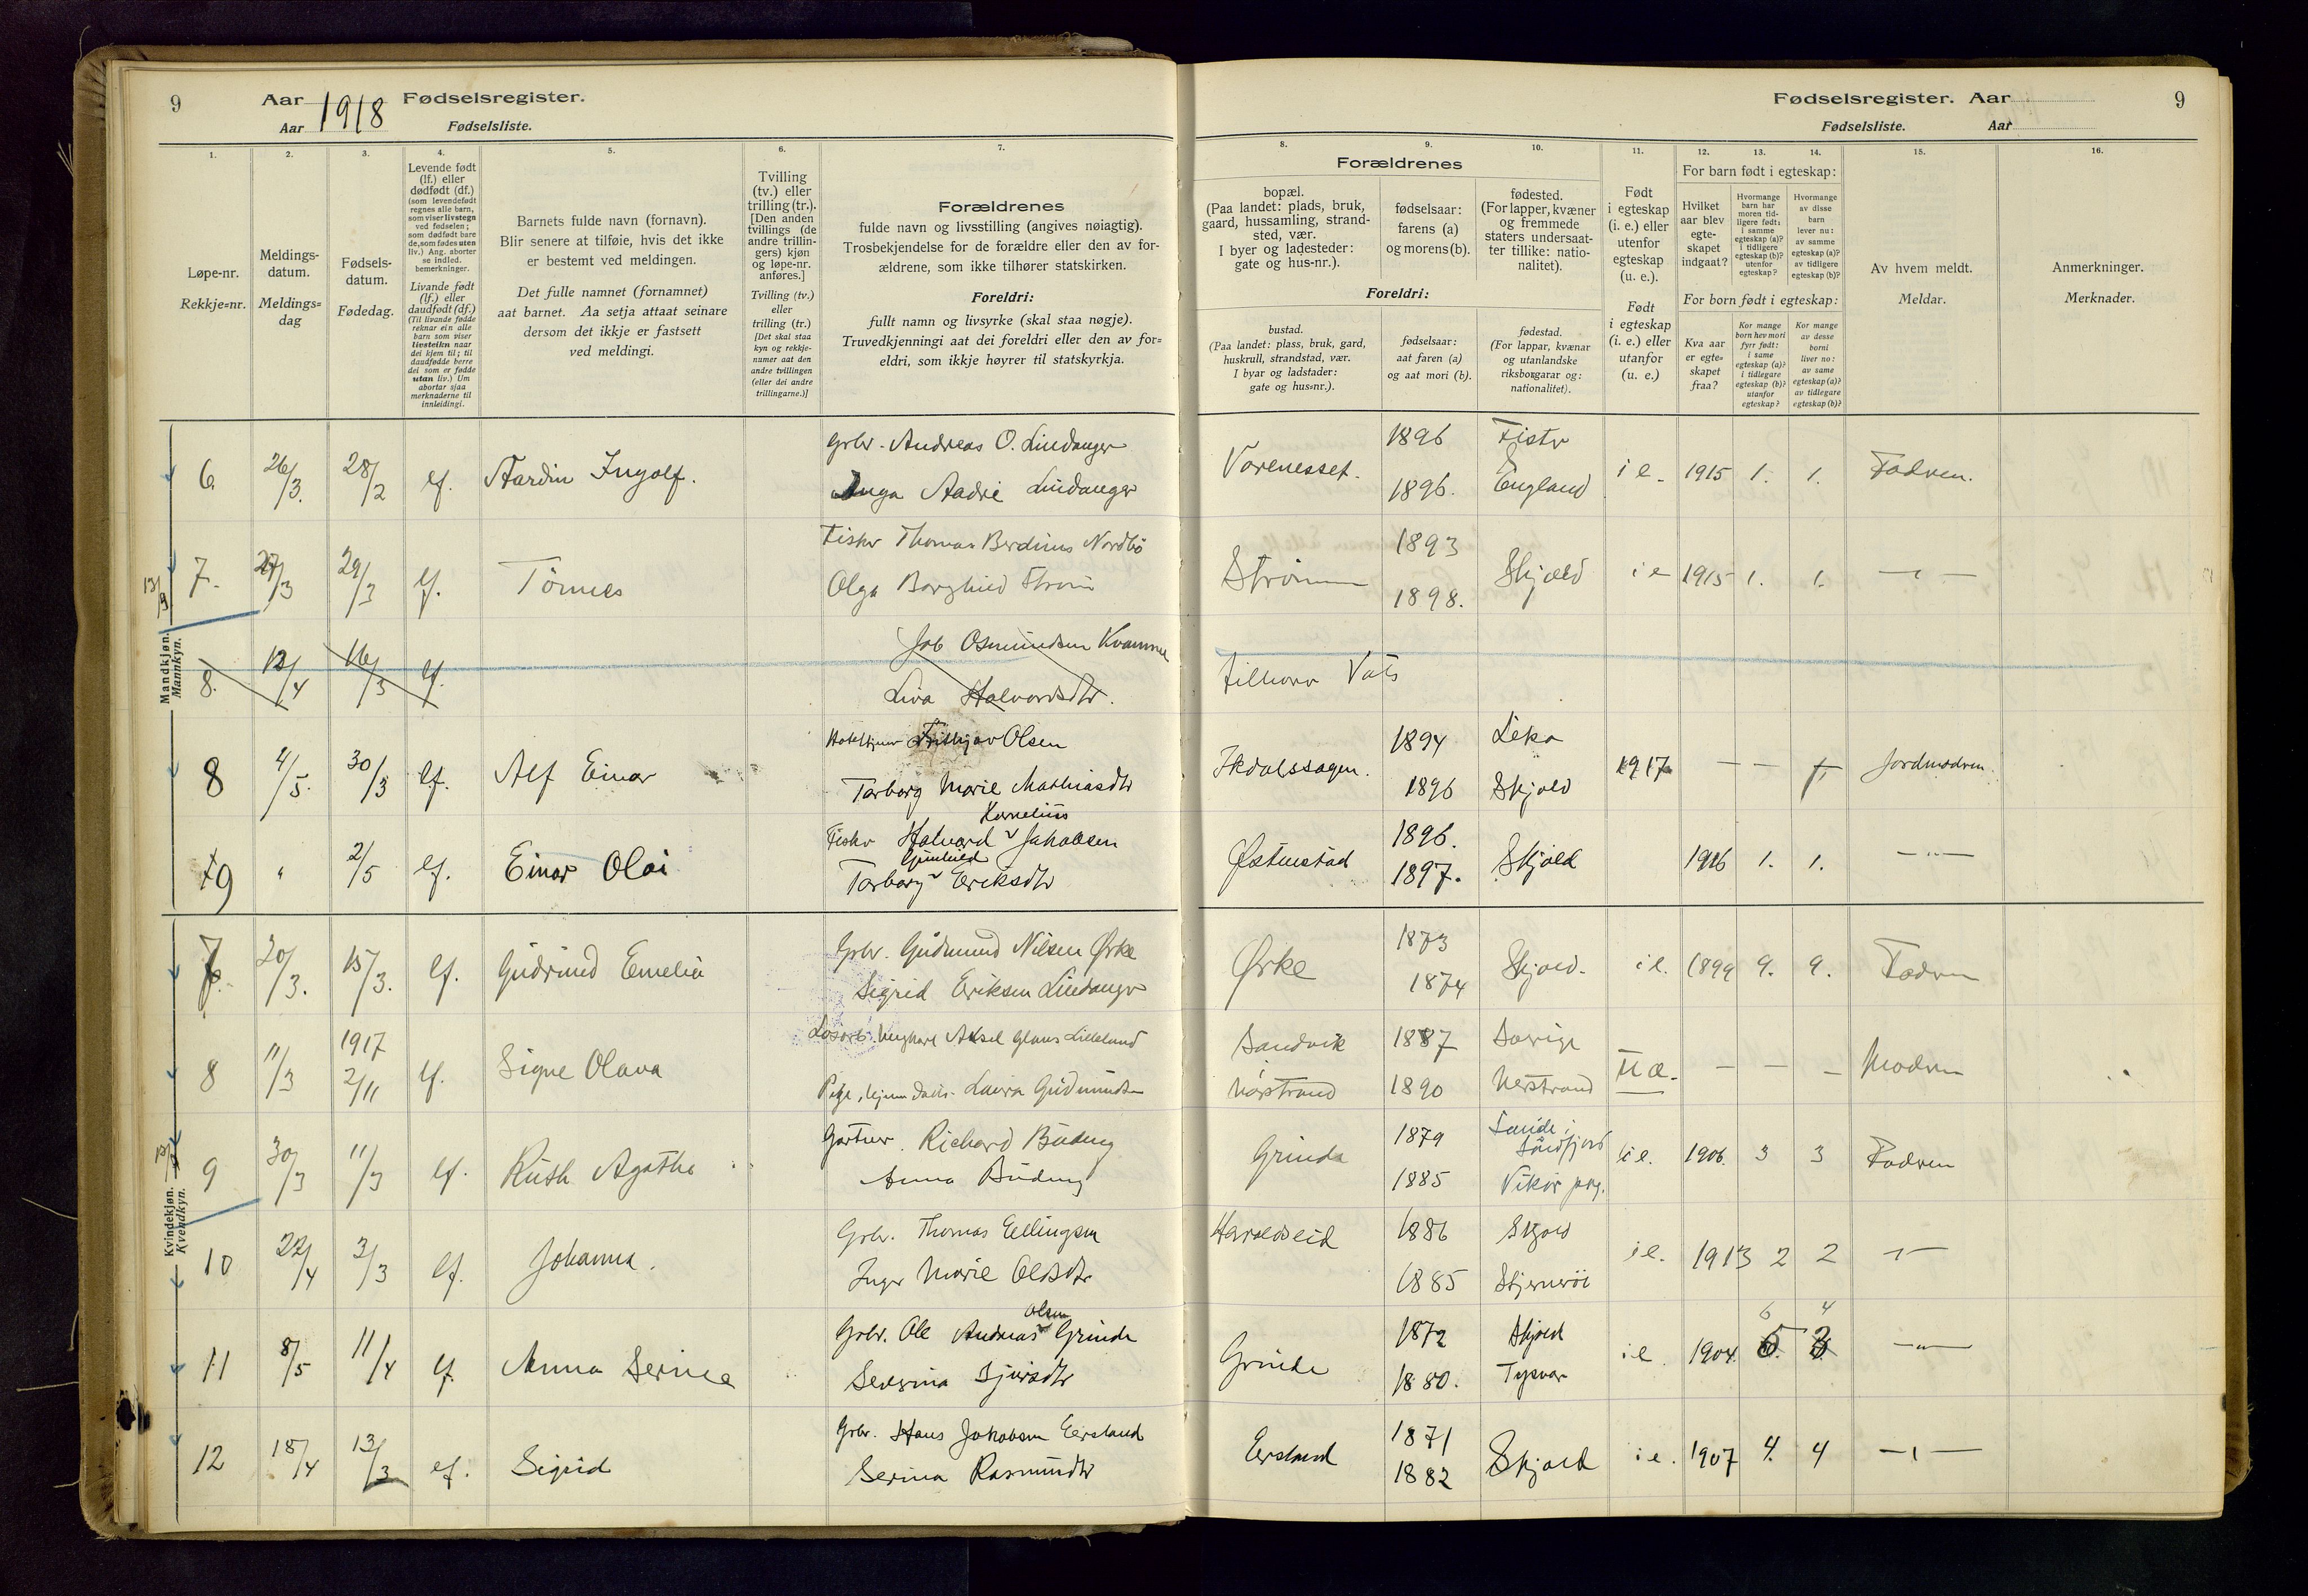 9 Aar 1918 Fødselsregister.
Aar Fødselsliste.
Fødselsregister. Aar 9
Fødselsliste. Aar
1. 2. 3. 4. 5. 6. 7. 8. 9. 10. 11. 12. 13. 14. 15. 16.
Løpe-nr.
Rekkje=nr.
Meldings-
datum.
Meldings=
dag
Fødsels-
datum.
Fødedag.
Levende født
(lf.) eller
dødfødt (df.)
(som levendefødt
regnes alle barn,
som viser livstegn
ved fødselen;
som dødfødt bare
de, som fødes uten
liv.) Ang. aborter
se indled.
bemerkninger.
Livande født
(lf.) eller
daudfødt (df.)
(Til livande fødde
reknar ein alle
barn som viser
livsteikn naar
dei kjem til; til
daudfødde berre
dei som er fødde
utan liv.) Um
abortar sjaa
merknaderne til
innleidingi.
Barnets fulde navn (fornavn).
Blir senere at tilføie, hvis det ikke
er bestemt ved meldingen.
Det fulle namnet (fornamnet)
aat barnet. Aa setja attaat seinare
dersom det ikkje er fastsett
ved meldingi.
Tvilling
(tv.) eller
trilling (tr.).
[Den anden
tvillings (de
andre trillin-
gers) kjøn
og løpe-nr.
anføres.]
Tvilling (tv.)
eller
trilling (tr.)
[Det skal staa
kyn og rekkje-
numer aat den
andre tvillingen
(eller dei andre
trillingarne.)]
Forældrenes
fulde navn og livsstilling (angives nøiagtig).
Trosbekjendelse for de forældre eller den av for-
ældrene, som ikke tilhører statskirken.
Foreldri:
fullt namn og livsyrke (skal staa nøgje).
Truvedkjenningi aat dei foreldri eller den av for=
eldri, som ikkje høyrer til statskyrkja.
Forældrenes
bopæl.
(Paa landet: plads, bruk,
gaard, hussamling, strand-
sted, vær.
I byer og ladesteder:
gate og hus-nr.).
fødselsaar:
farens (a)
og morens (b).
fødested.
(For lapper, kvæner
og fremmede
staters undersaat-
ter tillike: natio-
nalitet).
Foreldri:
bustad.
(Paa landet: plass, bruk, gard,
huskrull, strandstad, vær.
I byar og ladstader:
gate og hus=nr.).
fødselsaar:
aat faren (a)
og aat mori (b).
fødestad.
(For lappar, kvænar
og utanlandske
riksborgarar og:
nationalitet).
Født
i egteskap
(i. e.) eller
utenfor
egteskap
(u. e.).
Født
i egteskap
(i. e.) eller
utanfor
(u. e.)
For barn født i egteskap:
Hvilket
aar blev
egte-
skapet
indgaat?
Hvormange
barn har
moren tid-
ligere født:
i samme
egteskap (a)?
i tidligere
egteskap (b)?
utenfor
egteskap?
Hvormange
av disse
barn
lever nu:
av samme
egteskap (a)?
av tidligere
egteskap (b)?
For born født i egteskap:
Kva aar
er egte=
skapet
fraa?
Kor mange
born hev mori
fyrr født:
i same
egteskap (a)?
i tidlegare
egteskap (b)?
utanfor
egteskap?
Kor mange
av desse
borni
liver no:
av same
egteskap (a)?
av tidlegare
egteskap (b)?
Av hvem meldt.
Meldar.
Anmerkninger.
Merknader.
Mandkjøn.
Mannkyn.
Grbr. Andreas O. Lindanger 1896
6 26/3. 28/2 lf. Ingolf. Vorenesset. i e. 1915 1. 1. Fadren.
Inga Lindanger 1896. England
Fisker Thomas Berdinus Nordbö 1893
7. 27/3 29/3 lf. Tönnes Strömm Skjold i e 1915 1. 1. — " —
Olga Borghild Ström 1898.
Job Osmundsen Kvamme
8. 12/4 16/3 lf. tilhører Vats
Liva Halvordsdtr.
Fritjav Olsen 1894 Leka
8 4/5. 30/3 lf. Alf Einar 1917 — — Jordmodren
Torborg Marie Mathiasdtr 1896 Skjold
Kornelius
Fisker Halvard Jakobsen 1896.
9 " 2/5 lf. Einar Olai Østenstad Skjold 1916 1. 1. — " —
Gunhild
Torborg Eriksdtr 1897.
Kvindekjøn.
Kvendkyn.
Grbr. Gudmund Nilsen Ørke 1873
7. 20/3. 15/3. lf. Gudrund Emelie Ørke Skjold. i e. 1899 9. 9. Fadren
Sigrid Eriksen Lindanger 1874
1917 Aksel Lillelund Sandvik 1887 Sverige
8 11/3 2/11 lf. Signe Olava U æ. — — — Modren
Pige, Laura Gudmunds Nerstrand 1890 Nerstrand
Gartner. Richard Büdeng 1879 Sande i Söndfjord
9 30/3 11/3 lf. Ruth Agathe Grinde i e. 1906. 3 3 Fadren
Anna Büdeng 1885 Vikör prg.
Grbr. Thomas Ellingsen Haraldseid 1886 Skjold
10 22/4 3/3 lf. Johanna. i e. 1913 2 2 — " —
Inger Marie Olsdtr 1885 Stjernröi
Olsen 6 4
Grbr. Ole Andreas Grinde 1872 Skjold
11 8/5 11/4 lf. Anna Serine Grinde i e. 1904. 5. 3 — " —
Severina Sjursdtr 1880. Tysvær
Grbr. Hans Jakobsen Eersland 1871
12 18/4 13/3 lf. Sigrid Eersland Skjold i e. 1907 4. 4 — " —
Serina Rasmundtr 1882